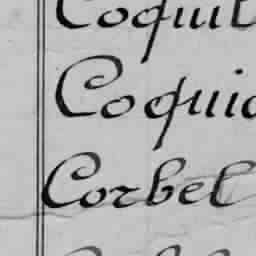 Coquil
Coquia
Corbel